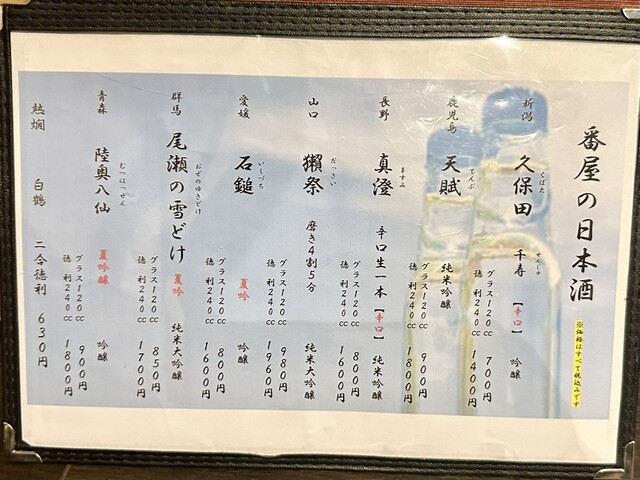 番屋の日本酒
※価格はすべて税込みです
新潟 久保田 千寿 【辛口】 吟醸
くぼた せんじゅ
グラス120cc 700円
徳利240cc 1400円
鹿児島 天賦 純米吟醸
てんぶ
グラス120cc 900円
徳利240cc 1800円
長野 真澄 辛口生一本【辛口】 純米吟醸
ますみ
グラス120cc 800円
徳利240cc 1600円
山口 獺祭 磨き4割5分 純米大吟醸
だっさい
グラス120cc 980円
徳利240cc 1960円
愛媛 石鎚 夏吟 吟醸
いしづち
グラス120cc 800円
徳利240cc 1600円
群馬 尾瀬の雪どけ 夏吟 純米大吟醸
おぜのゆきどけ
グラス120cc 850円
徳利240cc 1700円
青森 陸奥八仙 夏吟醸 吟醸
むつはっせん
グラス120cc 900円
徳利240cc 1800円
熱燗 白鶴 二合徳利 630円